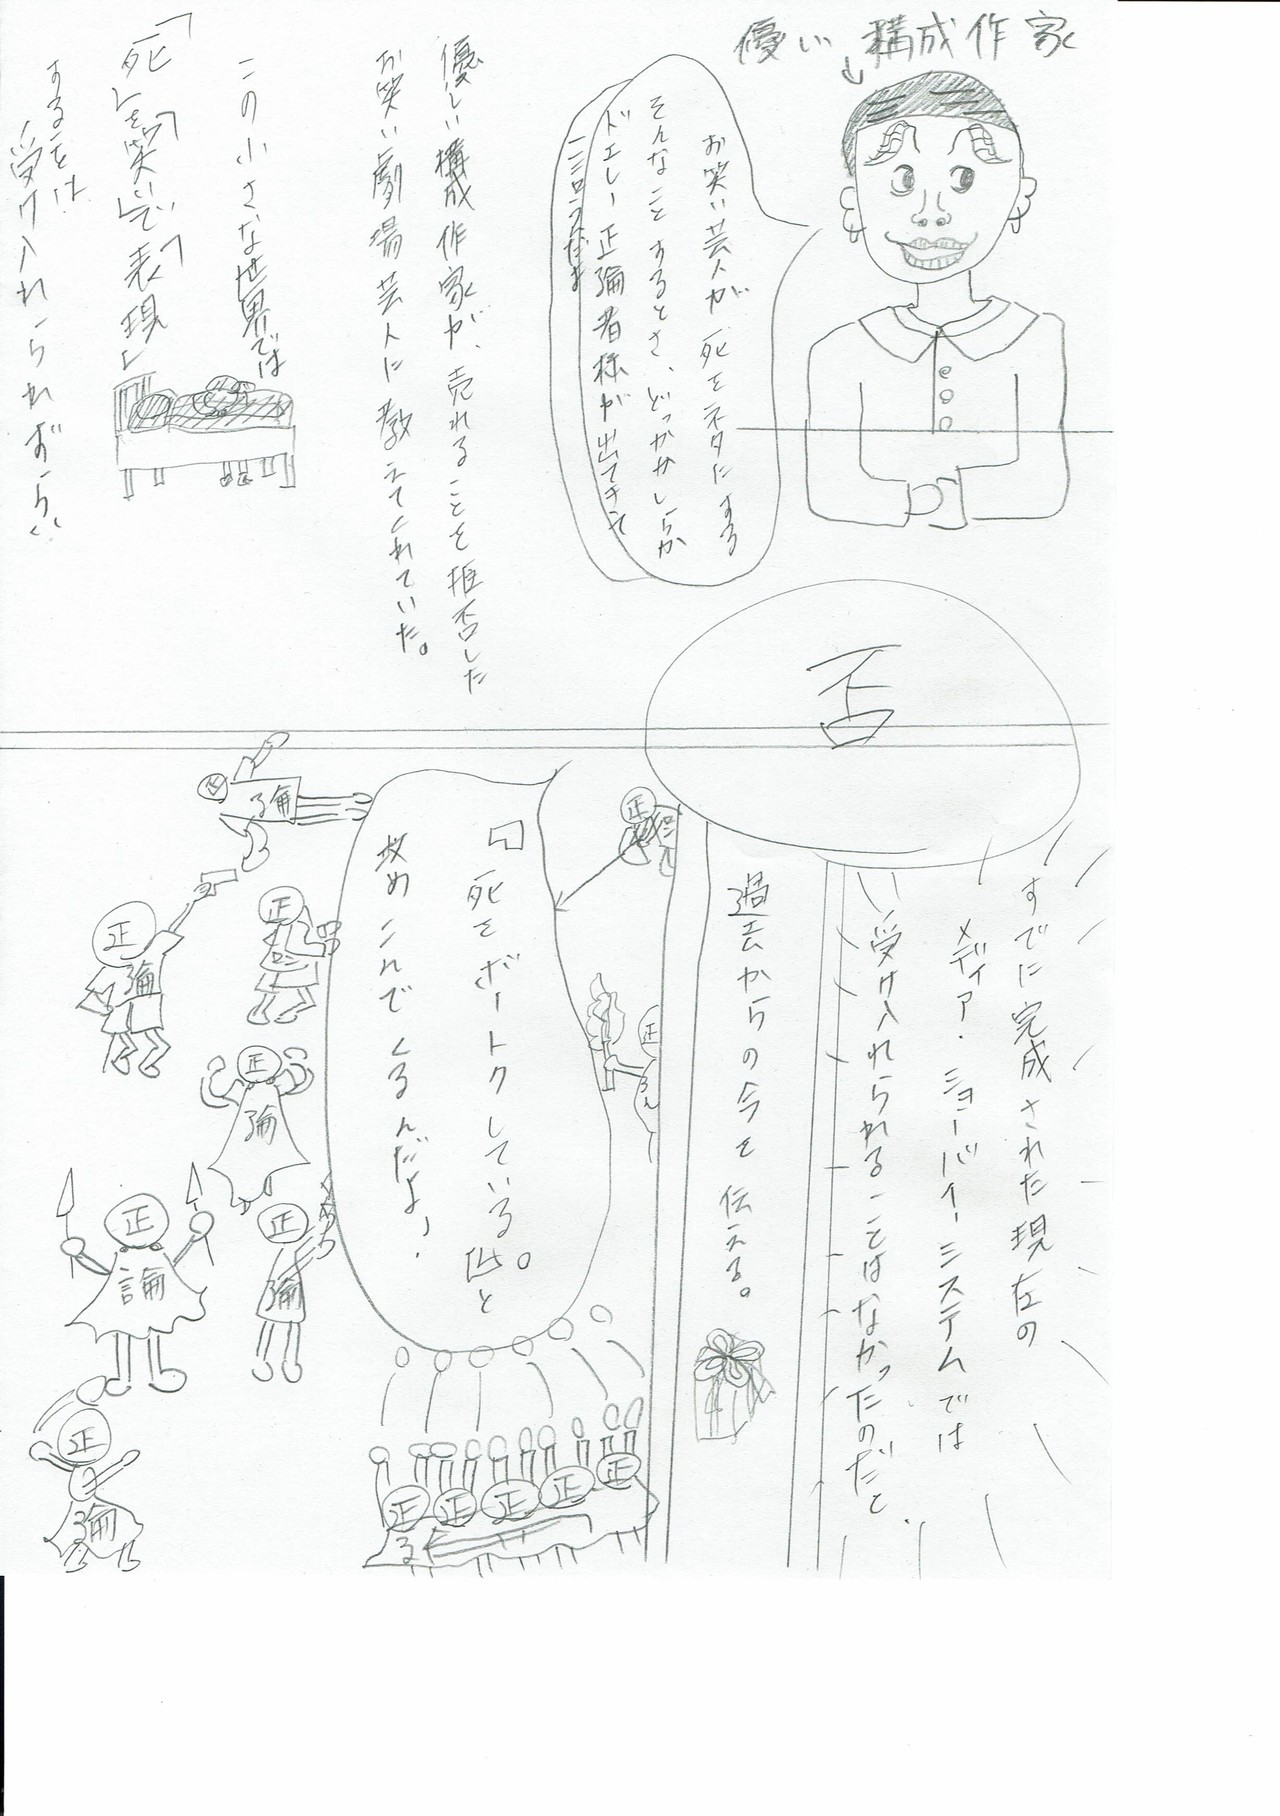 優い構成作家
お笑い芸人が死をネタにする
そんなことするとさ、どっかかしらか
ドエレー正論者様が出てきて
優しい構成作家が、売れることを拒否した
お笑い劇場芸人に教えてくれていた。
この小さな世界では
「死」を「笑い」で「表現」
することは
受け入れられずらい
否
すでに完成された現在の
メディア・ショーバイ・システムでは
受け入れられることはなかったのだと、
過去からの今を伝える。
『死をボートクしている。』と
攻めこんでくるんだよ、
正
正
ろん
論
正
論
正
正
論
正
論
正
論
正
論
正
正
正
正
正
ろ